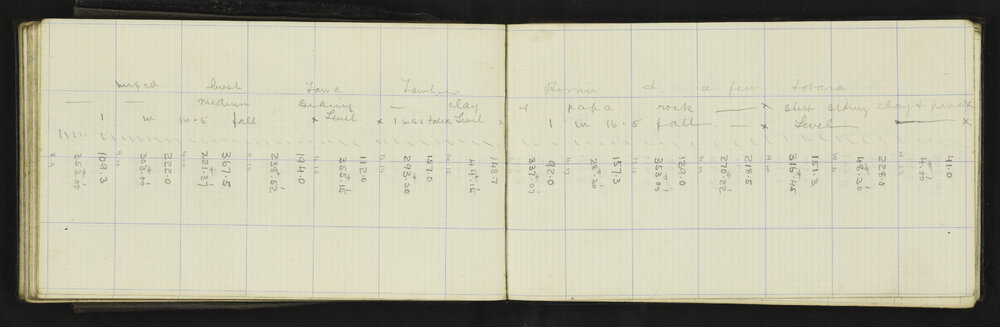 mixed bush Tawa Tawhero Rimu & a few totara
— — medium siding — clay & papa rock — x steep siding clay & papa x
1 in 16.5 fall x Level x 1 in 16.5 fall x Level x 1 in 16.5 fall — x Level — x
353°.00'
109.3
303°.00'
222.0
221°.37'
367.5
238°.52'
194.0
355°.15'
112.0
293°.30'
157.0
44°.15'
118.7
337°.07'
92.0
157.3
353°.00'
139.0
270°.22'
218.5
316°.45'
151.3
48°.30'
228.0
4°.00'
41.0